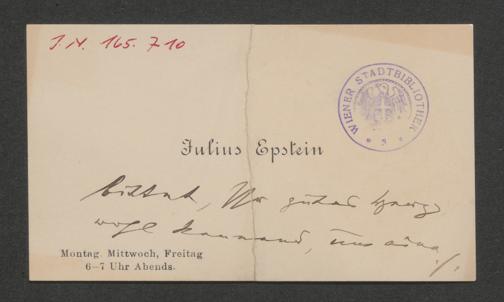 J.N. 165.710
WIENER STADTBIBLIOTHEK
Julius Epstein
bittet, Ihr gutes Herz
Montag, Mittwoch, Freitag
6–7 Uhr Abends.